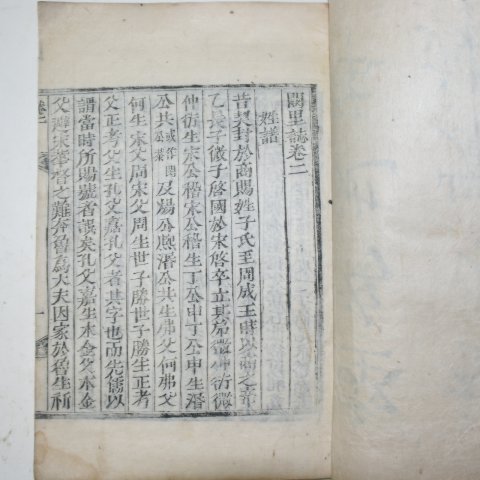 闕里誌卷二
姓譜
昔契封於商賜姓子氏至周成王時以帝乙之
乙長子微子啓國於宋啓卒立其弟微仲衍微
仲衍生宋公稽宋公稽生丁公申丁公申生湣
公共或作閔公巣及煬公熈湣公共生弗父何弗父
何生宋父周宋父周生世子勝世子勝生正考
父正考父生孔父嘉孔父者其字也而先儒以
謂當時所賜號者誤矣孔父嘉生木金父木金
父避宋華督之難奔魯爲大夫因家於魯生祈
卷二
一